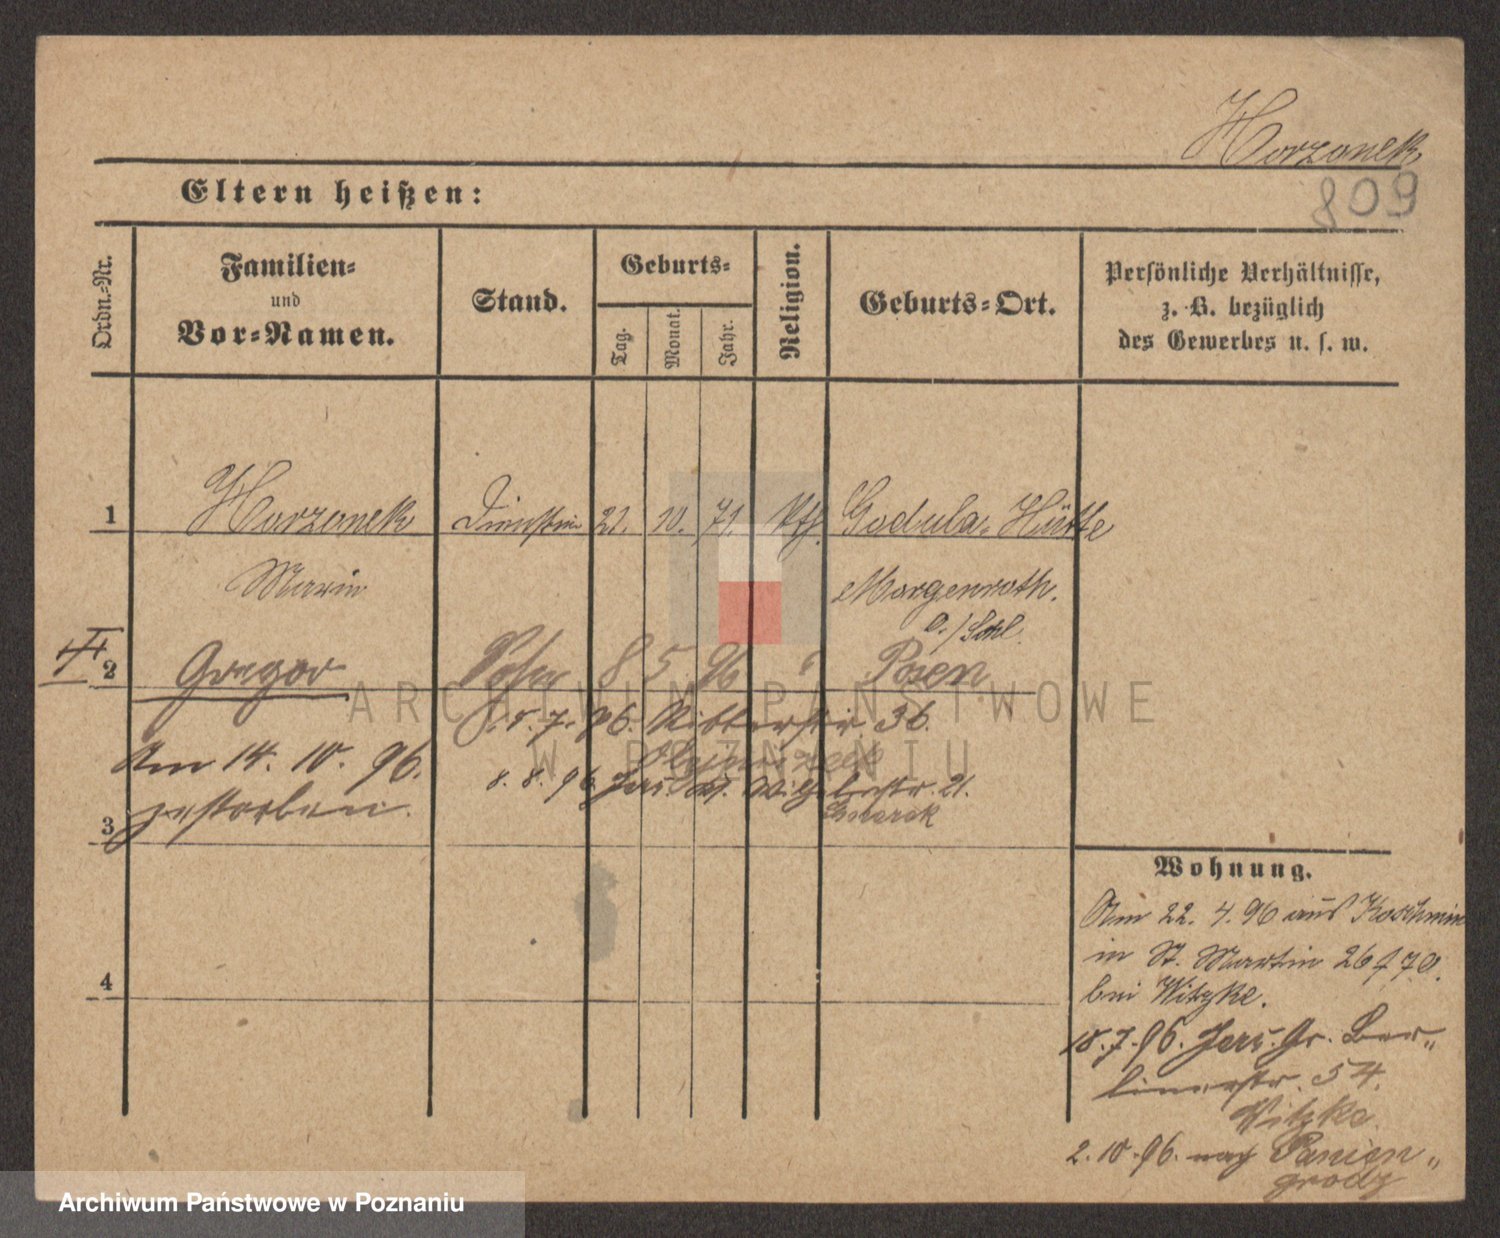 Horzonek
809
Eltern heißen:
Ordn.-Nr.
Familien-
und
Vor-Namen.
Stand.
Geburts-
Tag.
Monat.
Jahr.
Religion.
Geburts-Ort.
Persönliche Verhältnisse,
z. B. bezüglich
des Gewerbes u. s. w.
1 Horzonek Dienstm 22. 10. 71. Kth. Godula-Hütte
Marie Morgenroth.
O./Schl.
2 Gregor Sohn 8 5 96 Posen
15. 7. 96. Ritterstr. 36.
Am 14. 10. 96.
8. 8. 96 Jers. 21.
3 gestorben.
4
Wohnung.
Am 22. 4. 96 aus Koschmin
in St. Martin 26
bei Witzke.
18. 7. 96. Jers. Gr. Ber„
linerstr. 54.
Witzke.
2. 10. 96. nach Panien„
grodz
ARCHIWUM PAŃSTWOWE
W POZNANIU
Archiwum Państwowe w Poznaniu